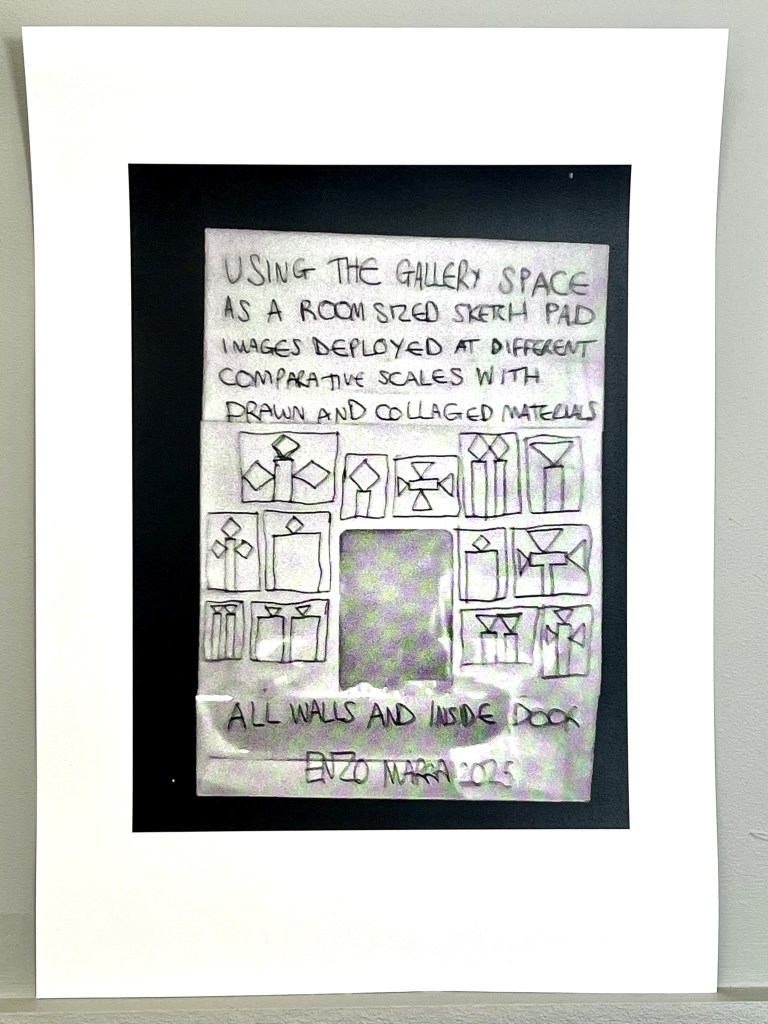 USING THE GALLERY SPACE
AS A ROOM SIZED SKETCH PAD
IMAGES DEPLOYED AT DIFFERENT
COMPARATIVE SCALES WITH
DRAWN AND COLLAGED MATERIALS
ALL WALLS AND INSIDE DOOR
ENZO MARRA 2025